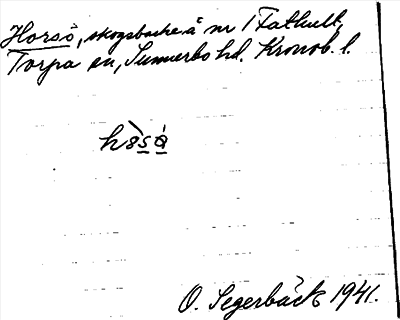 Horsö, skogsbacke å nr 1 Fathult,
Torpa sn, Sunnerbo hd. Kronob. l.
hòsá
O. Segerbäck 1941.